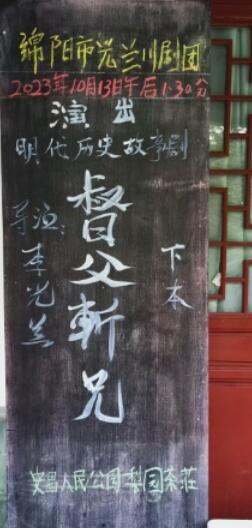 绵阳市光兰川剧团
2023年10月13日午后1·30分
演出
明代历史故事剧
督父斬兄
下本
导演:李光兰
安昌人民公园梨园茶荘